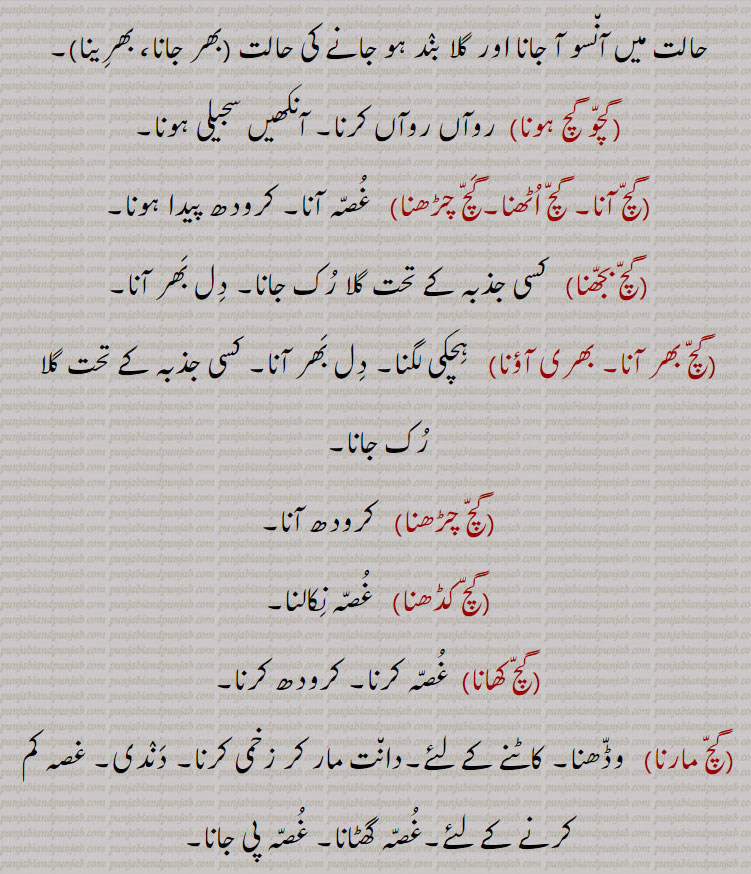 حالت میں آنّسو آ جانا اور گلا بنْد ہو جانے کی حالت (بھر جانا، بھرِینا)۔
(گچّوگچ ہونا) روآں روآں کرنا۔ آنکھیں سجیلی ہونا۔
(گچّ آنا۔ گچّ اُٹھنا۔ گَچّ چڑھنا) غُصّہ آنا۔ کرودھ پیدا ہونا۔
(گچّ بجھّنا) کسی جذبہ کے تحت گلا رُک جانا۔ دِل بَھر آنا۔
(گچّ بھر آنا۔ بھری آؤنا) ہِچکی لگنا۔ دِل بَھر آنا۔ کسی جذبہ کے تحت گلا
رُک جانا۔
(گچّ چڑھنا) کرودھ آنا۔
(گچّ کڈھنا) غُصّہ نِکالنا۔
(گچّ کھانا) غُصّہ کرنا۔ کرودھ کرنا۔
(گچّ مارنا) وڈّھنا۔ کاٹنے کے لئے۔ دانّت مار کر زخمی کرنا۔ دَنْدی۔ غصہ کم
کرنے کے لئے۔ غُصّہ گھٹانا۔ غُصّہ پی جانا۔